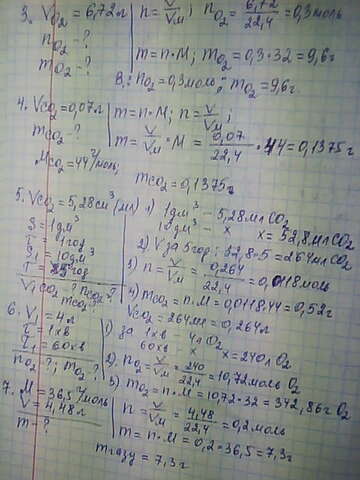 3. V O₂ = 6,72 л | n = V/Vм ; n O₂ = 6,72/22,4 = 0,3 моль
n O₂ - ?
m O₂ - ? | m = n·M; m O₂ = 0,3·32 = 9,6 г
В.: n O₂ = 0,3 моль; m O₂ = 9,6 г.
4. V CO₂ = 0,07 л | m = n·M; n = V/Vм ;
m CO₂ - ? | m = V/Vм · M = 0,07/22,4 · 44 = 0,1375 г
M CO₂ = 44 г/моль;
m CO₂ = 0,1375 г.
5. V CO₂ = 5,28 см³ (мл) 1) 1 дм³ – 5,28 мл CO₂
S = 1 дм³ 10 дм³ – x x = 52,8 мл CO₂
t = 1 год 2) V за 5 год: 52,8·5 = 264 мл CO₂
S₁ = 10 дм³
T = 5 год 3) n = V/Vм = 0,264/22,4 = 0,0118 моль
V CO₂ - ? n CO₂ - ?
m CO₂ - ? 4) m CO₂ = n·M = 0,0118·44 = 0,52 г
V CO₂ = 264 мл = 0,264 л
6. V₁ = 4 л 1) за 1 хв – 4 л O₂
τ = 1 хв 60 хв – x x = 240 л O₂
τ₁ = 60 хв
n O₂ - ?; m O₂ - ? 2) n O₂ = V/Vм = 240/22,4 = 10,72 моль O₂
3) m O₂ = n·M = 10,72·32 = 342,86 г O₂
7. M = 36,5 г/моль
V = 4,48 л | n = V/Vм = 4,48/22,4 = 0,2 моль
m - ? | m = n·M = 0,2·36,5 = 7,3 г
m газу = 7,3 г